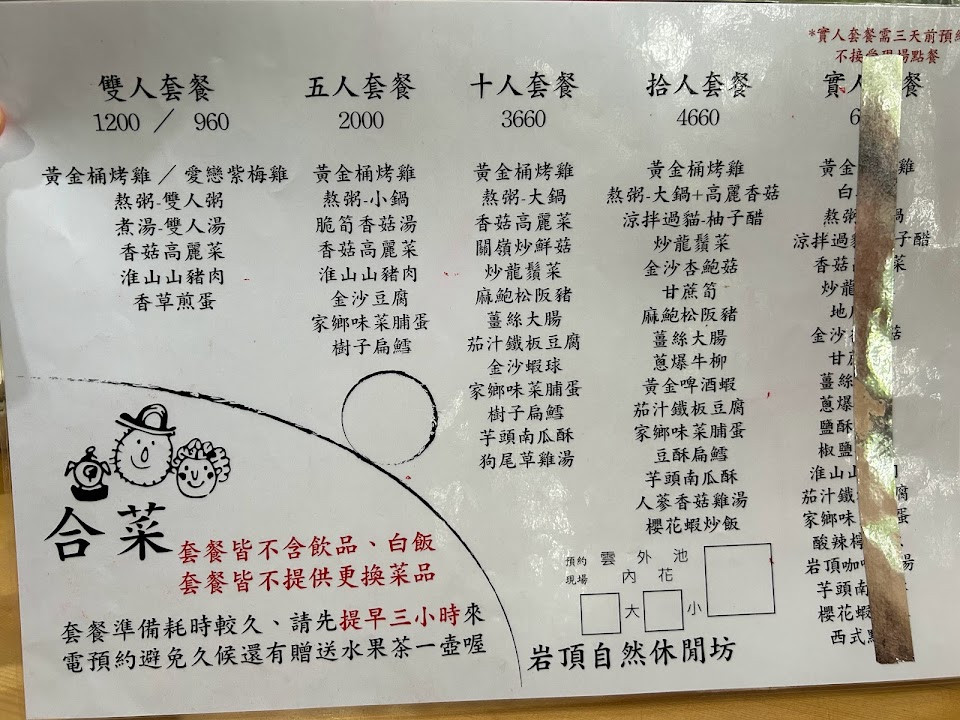 *實人套餐需三天前預約
不接受現場點餐
雙人套餐
1200 / 960
黃金桶烤雞 / 愛戀紫梅雞
熬粥-雙人粥
煮湯-雙人湯
香菇高麗菜
淮山山豬肉
香草煎蛋
五人套餐
2000
黃金桶烤雞
熬粥-小鍋
脆筍香菇湯
香菇高麗菜
淮山山豬肉
金沙豆腐
家鄉味菜脯蛋
樹子扁鱈
十人套餐
3660
黃金桶烤雞
熬粥-大鍋
香菇高麗菜
關嶺炒鮮菇
炒龍鬚菜
麻鮑松阪豬
薑絲大腸
茄汁鐵板豆腐
金沙蝦球
家鄉味菜脯蛋
樹子扁鱈
芋頭南瓜酥
狗尾草雞湯
拾人套餐
4660
黃金桶烤雞
熬粥-大鍋+高麗香菇
涼拌過貓-柚子醋
炒龍鬚菜
金沙杏鮑菇
甘蔗筍
麻鮑松阪豬
薑絲大腸
蔥爆牛柳
黃金啤酒蝦
茄汁鐵板豆腐
家鄉味菜脯蛋
豆酥扁鱈
芋頭南瓜酥
人蔘香菇雞湯
櫻花蝦炒飯
實人 餐
6
黃金 雞
白
熬粥 鍋
涼拌過貓 子醋
香菇 菜
炒龍
地
金沙 菇
甘蔗
薑絲
蔥爆
鹽酥
椒鹽
淮山山 肉
茄汁鐵 腐
家鄉味 蛋
酸辣檸
岩頂咖 湯
芋頭南
櫻花蝦
西式
合菜
套餐皆不含飲品、白飯
套餐皆不提供更換菜品
套餐準備耗時較久、請先提早三小時來
電預約避免久候還有贈送水果茶一壺喔
預約 雲 外 池
現場 內 花
大 小
岩頂自然休閒坊